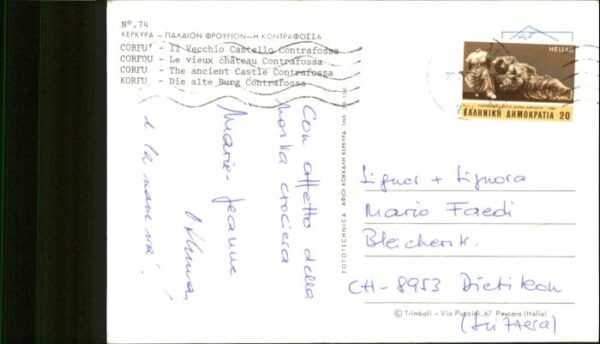 Nº. 74
ΚΕΡΚΥΡΑ - ΠΑΛΑΙΟΝ ΦΡΟΥΡΙΟΝ-Η ΚΟΝΤΡΑΦΟΣΣΑ
CORFU' - Il Vecchio Castello Contrafossa
CORFOU - Le vieux château Contrafossa
CORFU - The ancient Castle Contrafossa
KORFU - Die alte Burg Contrafossa
HELLAS
ΕΛΛΗΝΙΚΗ ΔΗΜΟΚΡΑΤΙΑ 20
Con affetto della
nostra crociera
Marie-Jeanne
e la nave va!
FOTOTECHNICA ΑΦΙΟΙ ΚΟΚΚΑΛΗ ΚΕΡΚΥΡΑ ΤΗΛ
Signor + Signora
Mario Faedi
CH-8953 Dietikon
(Svizzera)
© Trimboli - Via Puccini, 67 Pescara (Italia)